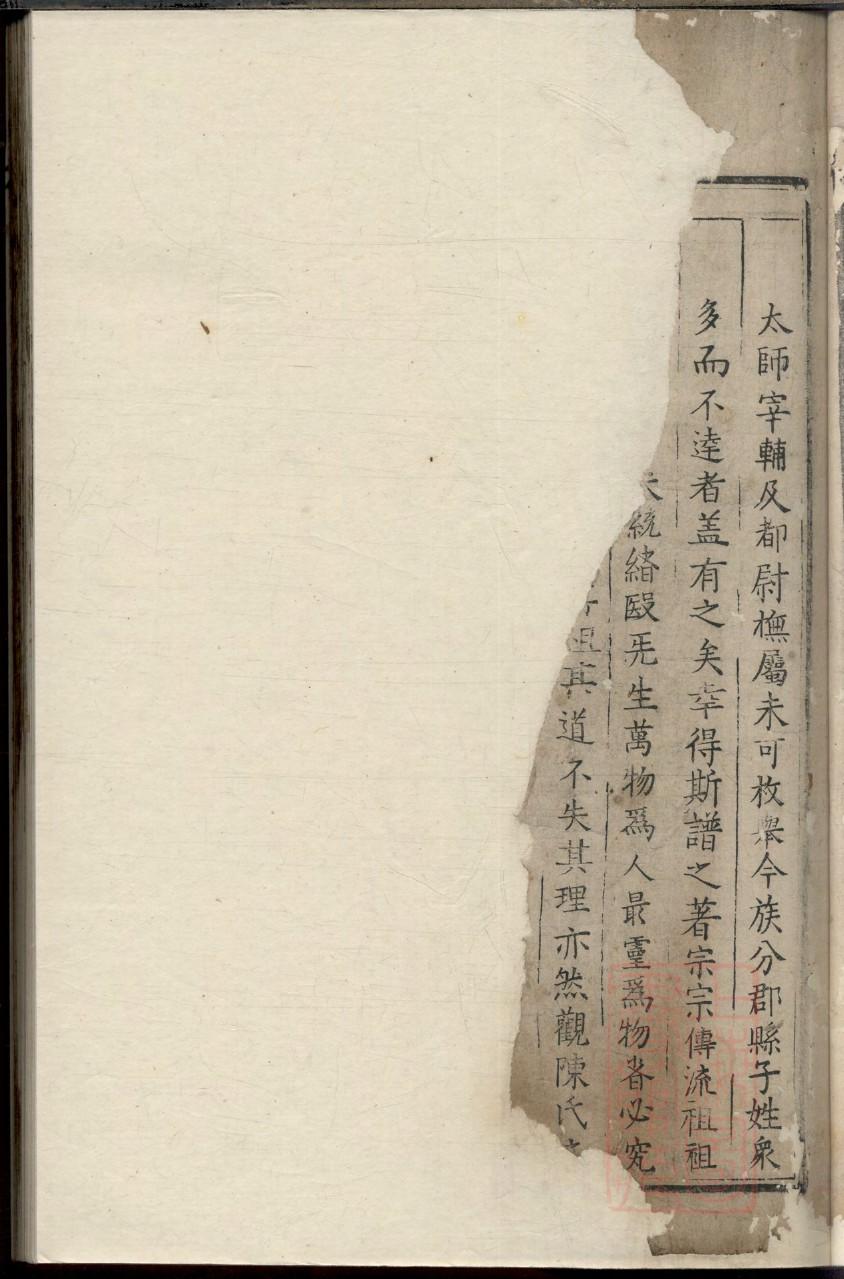 太師宰輔及都尉撫屬未可枚舉今族分郡縣子姓衆
多而不逹者盖有之矣幸得斯譜之著宗宗傳流祖祖
統緒殹旡生萬物爲人最靈爲物者必究
其道不失其理亦然觀陳氏